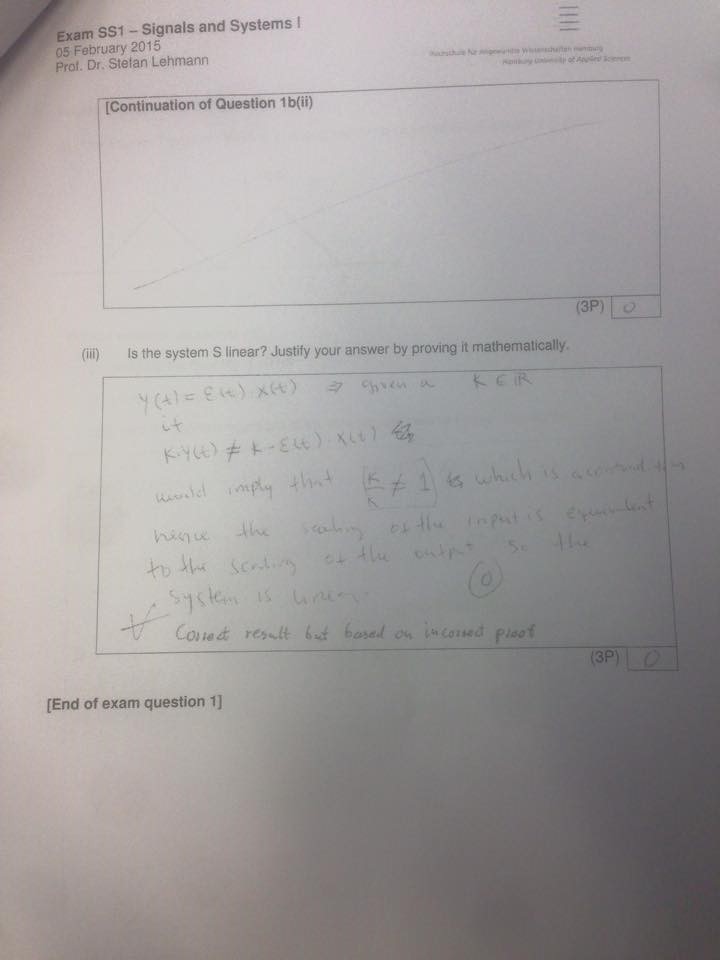 Exam SS1 – Signals and Systems I
05 February 2015
Prof. Dr. Stefan Lehmann
Hochschule für Angewandte Wissenschaften Hamburg
Hamburg University of Applied Sciences
[Continuation of Question 1b(ii)
(3P) 0
(iii) Is the system S linear? Justify your answer by proving it mathematically.
Y(t) = ε(t) · X(t) ⇒ given a K ∈ ℝ
it
K·Y(t) ≠ K·ε(t)·X(t)
would imply that [K/K ≠ 1] which is a
hence the scaling of the input is equivalent
to the scaling of the output so the
system is linear.
0
Correct result but based on incorrect proof
(3P) 0
[End of exam question 1]